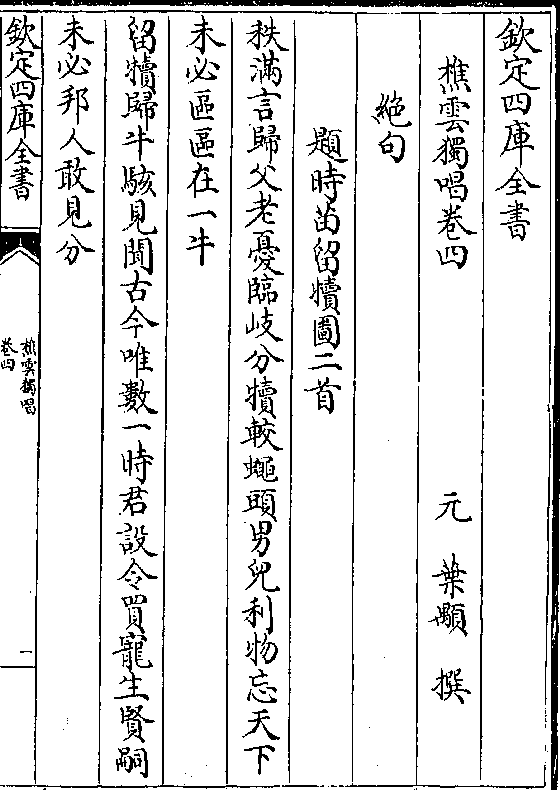 欽定四庫全書
樵雲獨唱卷四
元 葉顒 撰
絶句
題時苗留犢圖二首
秩滿言歸父老憂臨岐分犢較蠅頭男兒利物忘天下
未必區區在一牛
留犢歸牛駭見聞古今唯數一時君設令買寵生賢嗣
未必邦人敢見分
欽定四庫全書
樵雲獨唱
卷四
一